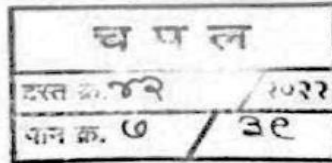 च प ल
दस्त क्र. ४२ / २०२२
पान क्र. ७ / ३९